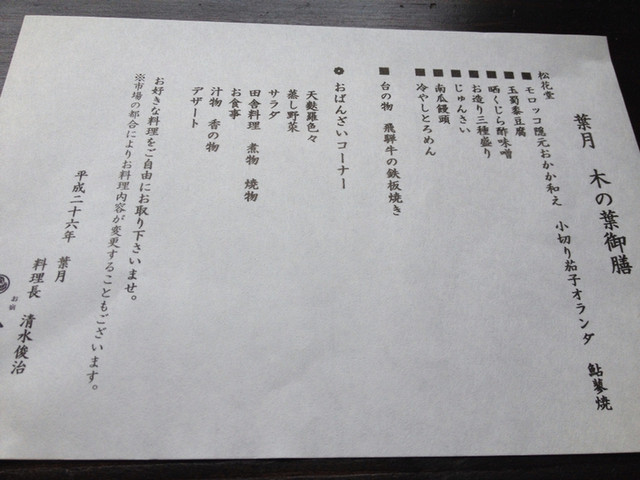 葉月　木の葉御膳
松花堂
■ モロッコ隠元おかか和え　小切り茄子オランダ　鮎蓼焼
■ 玉蜀黍豆腐
■ 晒くじら酢味噌
■ お造り三種盛り
■ じゅんさい
■ 南瓜饅頭
■ 冷やしとろめん
■ 台の物　飛騨牛の鉄板焼き
おばんざいコーナー
天麩羅色々
蒸し野菜
サラダ
田舎料理　煮物　焼物
お食事
汁物　香の物
デザート
お好きな料理をご自由にお取り下さいませ。
※市場の都合によりお料理内容が変更することもございます。
平成二十六年　葉月
料理長　清水俊治
お宿